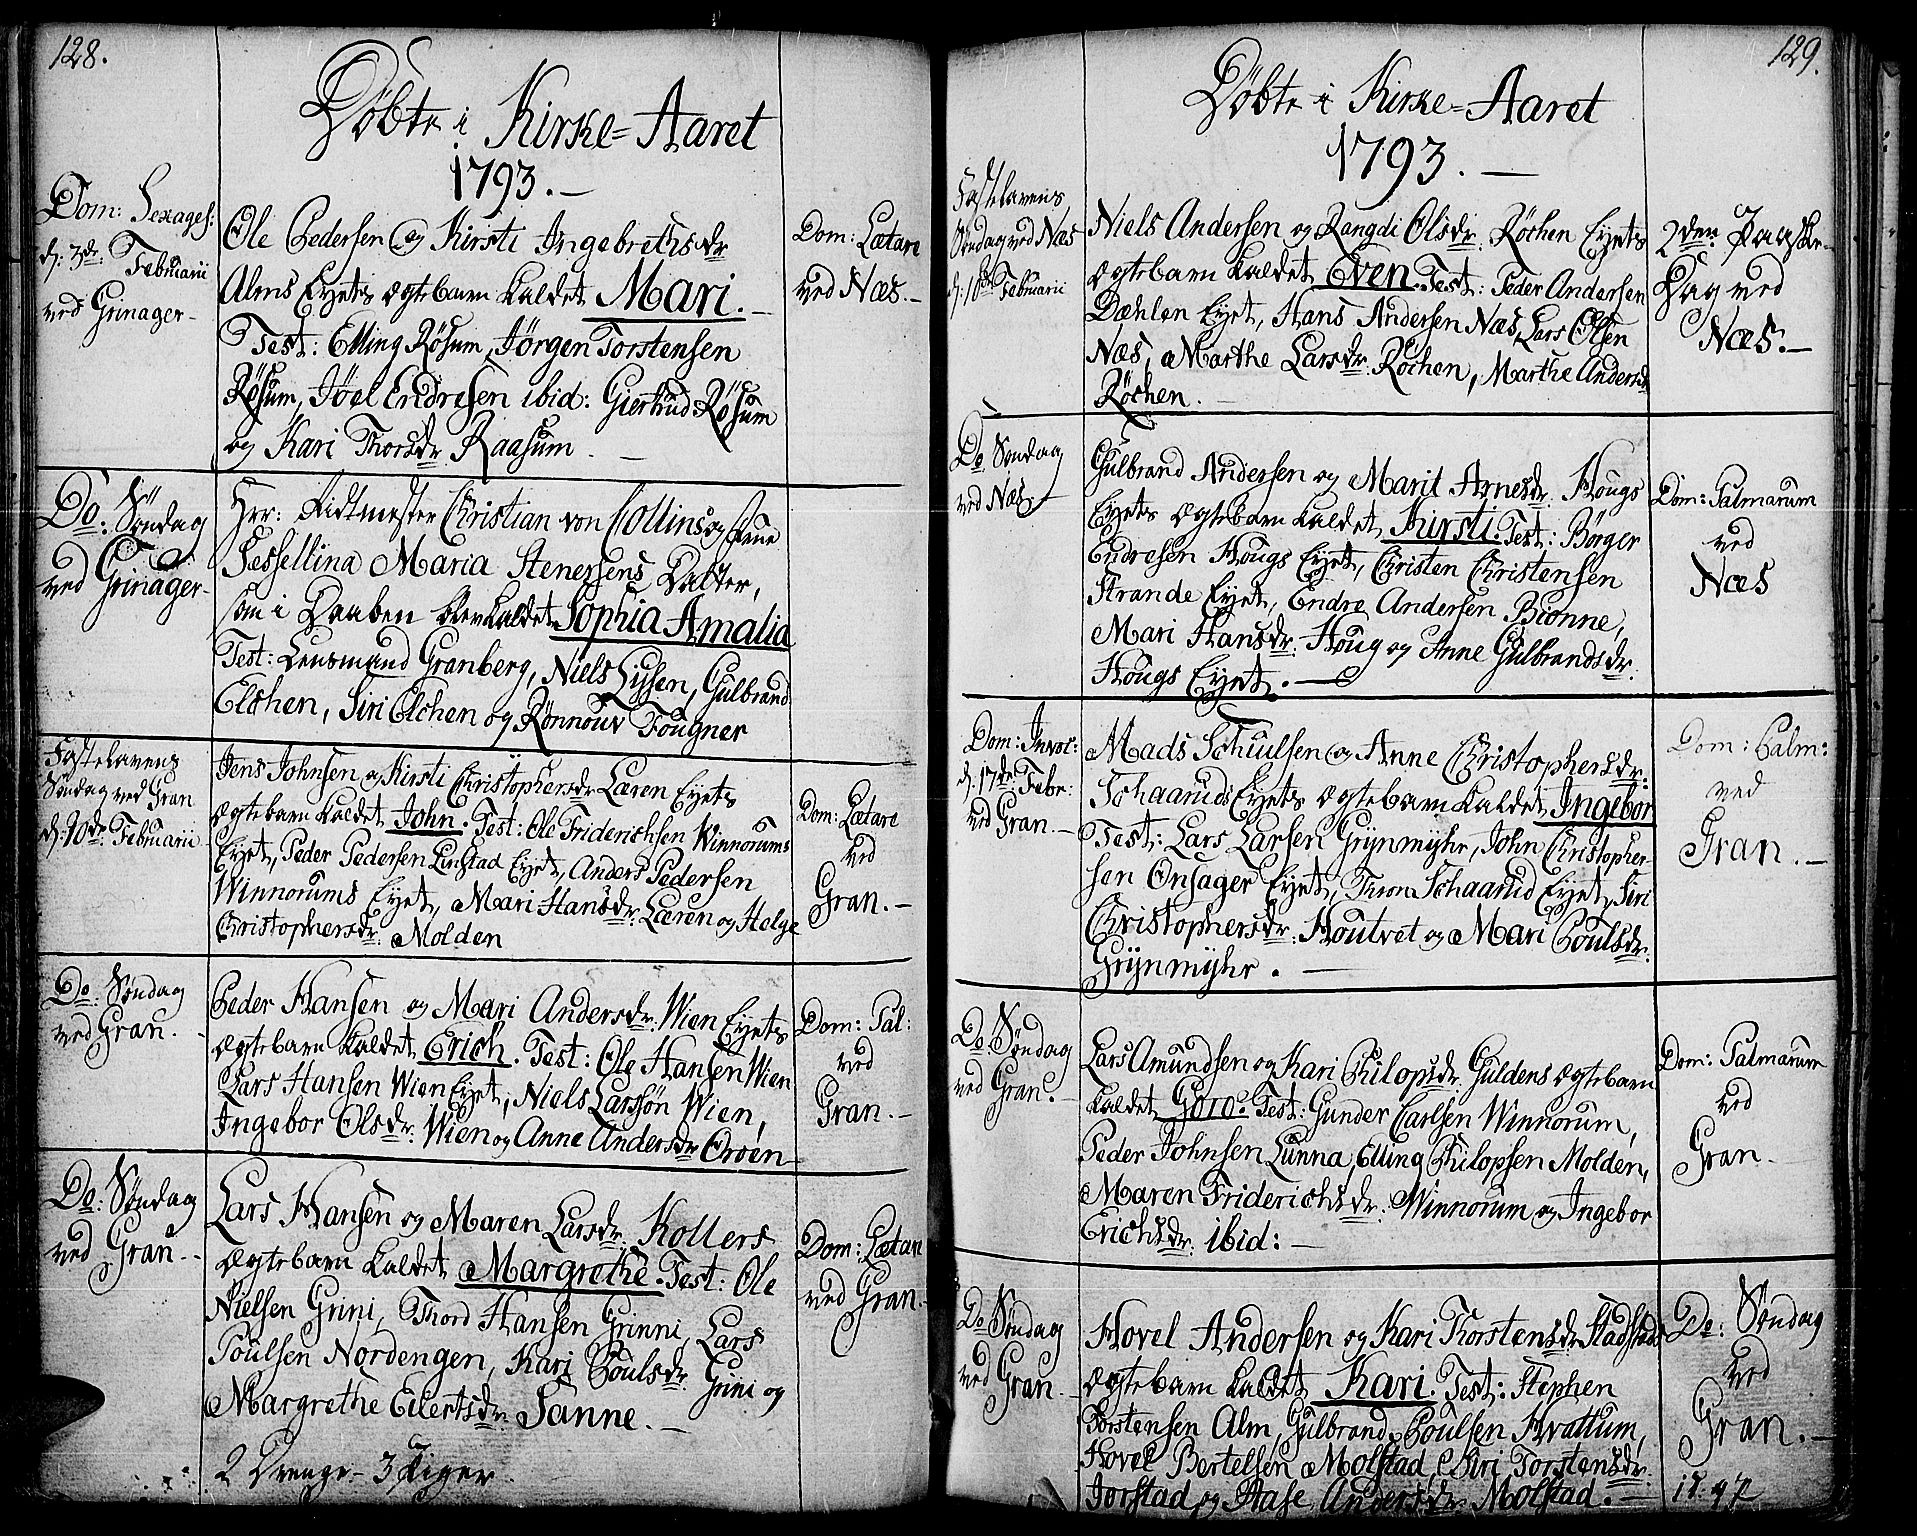 128.
Døbte i Kirke=Aaret
1793.—
Dom: Sexages:
d: 3de Februarii
ved Grinager-
Ole Pedersen og Kirsti Ingebrethsdr
Alms Eyets ægtebarn kaldet Mari.—
Test: Elling Røsum, Jörgen Torstensen
Røsum, Jöel Endresen ibid: Giertrud Røsum
og Kari Thorsdr Raasum.—
Dom: Lætare
ved Næs.—
Do: Söndag
ved Grinager-
Hrr: Ridtmester Christian von Collins og Frue
Sessellina Maria Stenersens Datter,
som i Daaben blev kaldet Sophia Amalia
Test: Lensmand Granberg, Niels Lysen, Gulbrand
Elchen, Siri Elchen og Rønnouv Fougner
Fastelavens
Søndag ved Gran
d: 10de Februarii
Jens Johnsen og Kirsti Christophersdr Læren Eyets
ægtebarn kaldet John. Test: Ole Friderichsen Winnorums
Eyet, Peder Pedersen Linstad Eyet, Anders Pedersen
Winnorums Eyet, Mari Hansdr. Læren og Helge
Christophersdr: Molden
Dom: Lætare
ved
Gran.—
Do: Søndag
ved Gran.
Peder Hansen og Mari Andersdr: Wien Eyets
ægtebarn kaldet Erich. Test: Ole Hansen Wien
Lars Hansen Wien Eyet, Niels Larssøn Wien,
Ingebor Olsdr: Wien og Anne Andersdr Orøen
Dom: Pal:
ved
Gran.—
Do: Søndag
ved Gran.-
Lars Hansen og Maren Larsdr: Kollers
ægtebarn kaldet Margrethe. Test: Ole
Nielsen Grini, Thord Hansen Grinni, Lars
Poulsen Nordengen, Kari Poulsdr. Grini og
Margrethe Eilertsdr Sanne.—
Dom: Lætare
ved Gran.
2 Drenge - 3 Piger
129.
Døbte i Kirke=Aaret
1793.—
Fastelavens
Søndag ved Næs
d: 10de Februarii
Niels Andersen og Rangdi Olsdr: Röchen Eyets
ægtebarn kaldet Even. Test: Peder Andersen
Dæhlen Eyet, Hans Andersen Næs, Lars Olsen
Næs, Marthe Larsdr: Röchen, Marthe Andersdr
Röchen.—
2den Paaske-
Dag ved
Næs.—
Do Søndag
ved Næs.—
Gulbrand Andersen og Marit Arnesdr. Hougs
Eyets ægtebarn kaldet Kirsti. Test: Börger
Endresen Hougs Eyet, Christen Christensen
Strande Eyet, Endre Andersen Bionne,
Mari Hansdr: Houg og Anne Gulbrandsdr:
Hougs Eyet.—
Dom: Palmarum
ved
Næs
Dom: Invoc:
d: 17de Febr:
ved Gran.—
Mads Schiulsen og Anne Christophersdr:
Schaaruds Eyets ægtebarn kaldet Ingebor
Test: Lars Larsen Grynmyhr, John Christopher-
sen Onsager Eyet, Thron Schaarud Eyet, Siri
Christophersdr: Houtvet og Mari Poulsdr:
Grynmyhr.—
Dom: Palm:
ved
Gran.—
Do: Søndag
ved Gran.-
Lars Amundsen og Kari Philopsdr. Guldens ægtebarn
kaldet Goro. Test: Gunder Carlsen Winnorum,
Peder Johnsen Lunna, Elling Philopsen Molden,
Maren Friderichsdr: Winnorum og Ingebor
Erichsdr: ibid:—
Dom: Palmarum
ved
Gran.
Do: Søndag
ved Gran.-
Hovel Andersen og Kari Thorstensdr Stadstads
ægtebarn kaldet Kari. Test: Stephen
Torstensen Alm, Gulbrand Poulsen Hvattum,
Hovel Bertelsen Molstad, Siri Torstensdr:
Jorstad og Aase Andersdr. Molstad.—
Do: Søndag
ved
Gran.—